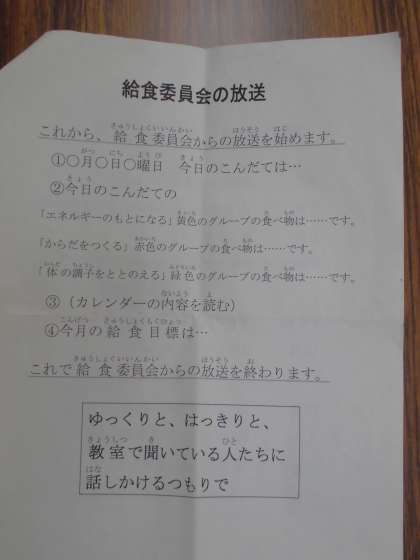 給食委員会の放送
これから、給食委員会からの放送を始めます。
①○月○日○曜日　今日のこんだては…
②今日のこんだての
「エネルギーのもとになる」黄色のグループの食べ物は……です。
「からだをつくる」赤色のグループの食べ物は……です。
「体の調子をととのえる」緑色のグループの食べ物は……です。
③（カレンダーの内容を読む）
④今月の給食目標は…
これで給食委員会からの放送を終わります。
ゆっくりと、はっきりと、
教室で聞いている人たちに
話しかけるつもりで